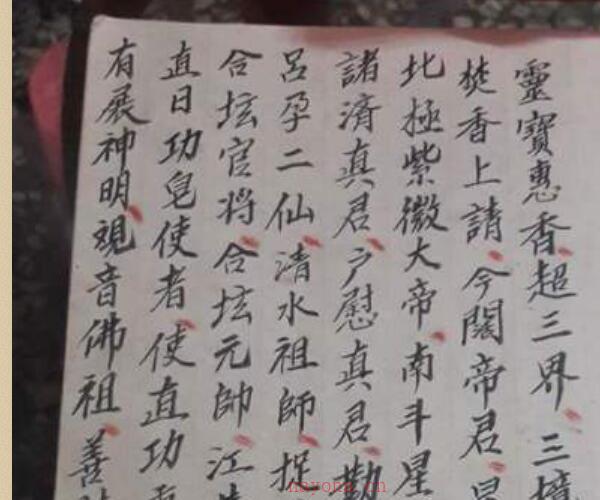 靈寶惠香超三界三境
焚香上請今闕帝君
北極紫微大帝南斗星
諸濟真君戶慰真君勘
呂孕二仙清水祖師捉
合坛官将合坛元帥江
直日功皂使者使直功
有展神明覌音佛祖善
nayona.cn